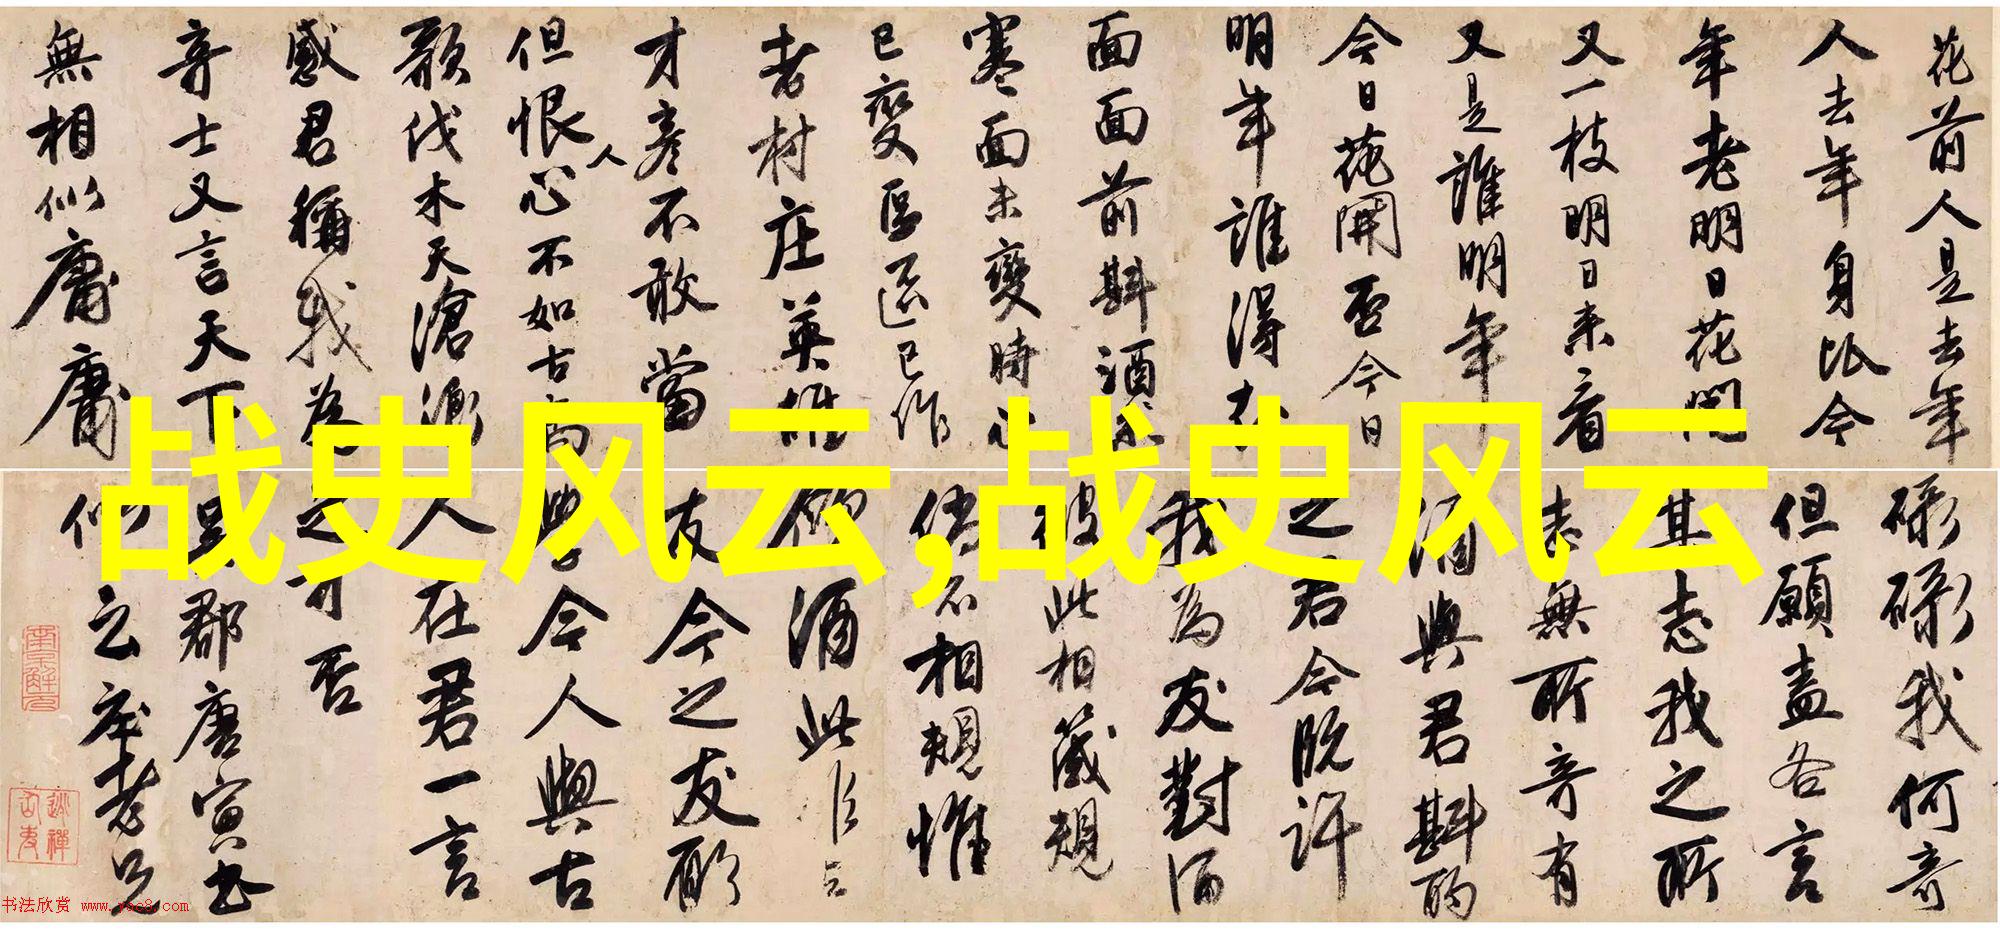 花前人是去年
人去年身比今
年老明日花開
又一枝明日来看
又是誰明年
今日花開否今日
明年誰得
面面前斟酒
寒面未變時
已變
老村庄英雄
才彦不敢當
但恨人心不如古
歌伐木天滄
感君稱我為
奇士又言天下
無相似庸庸
碌碌我何奇
但願盡各言
其志我之所
志無所奇有
酒與君斟酌
之君今既許
我為友對酒
彼此相箴規
相規惟
酒此
友今之友所
學今人與古
人在君一言
之可否
郡唐寅書
似之老兄
战史风云,战史风云
书法欣赏 www.yac8.com